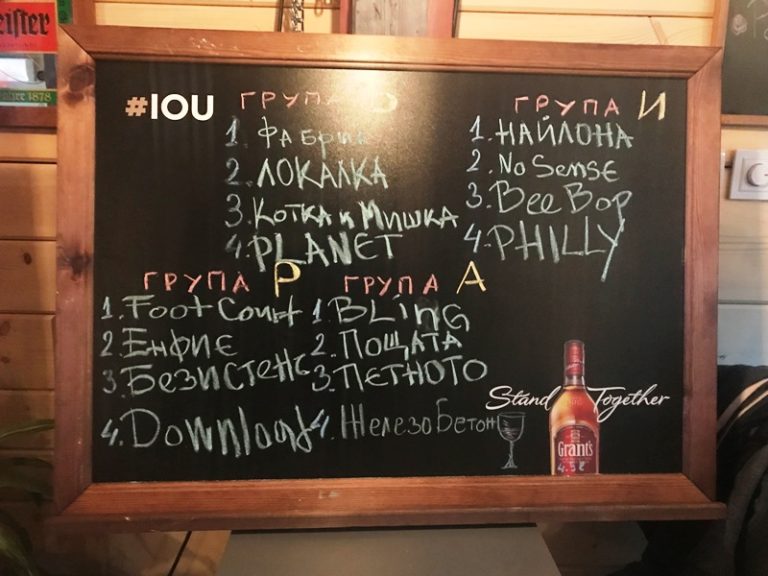 eister
1878
#IOU
ГРУПА Б
1. ФАБРИКА
2. ЛОКАЛКА
3. Котка и Мишка
4. PLANET
ГРУПА И
1. НАЙЛОНА
2. No Sense
3. Bee Bop
4. PHILLY
ГРУПА Р
1. Foot Court
2. Енфие
3. Безистенс
4. Download
ГРУПА А
1. BLing
2. ПОЩАТА
3. ПЕТНОТО
4. ЖелезоБетон
Stand Together
Grant's